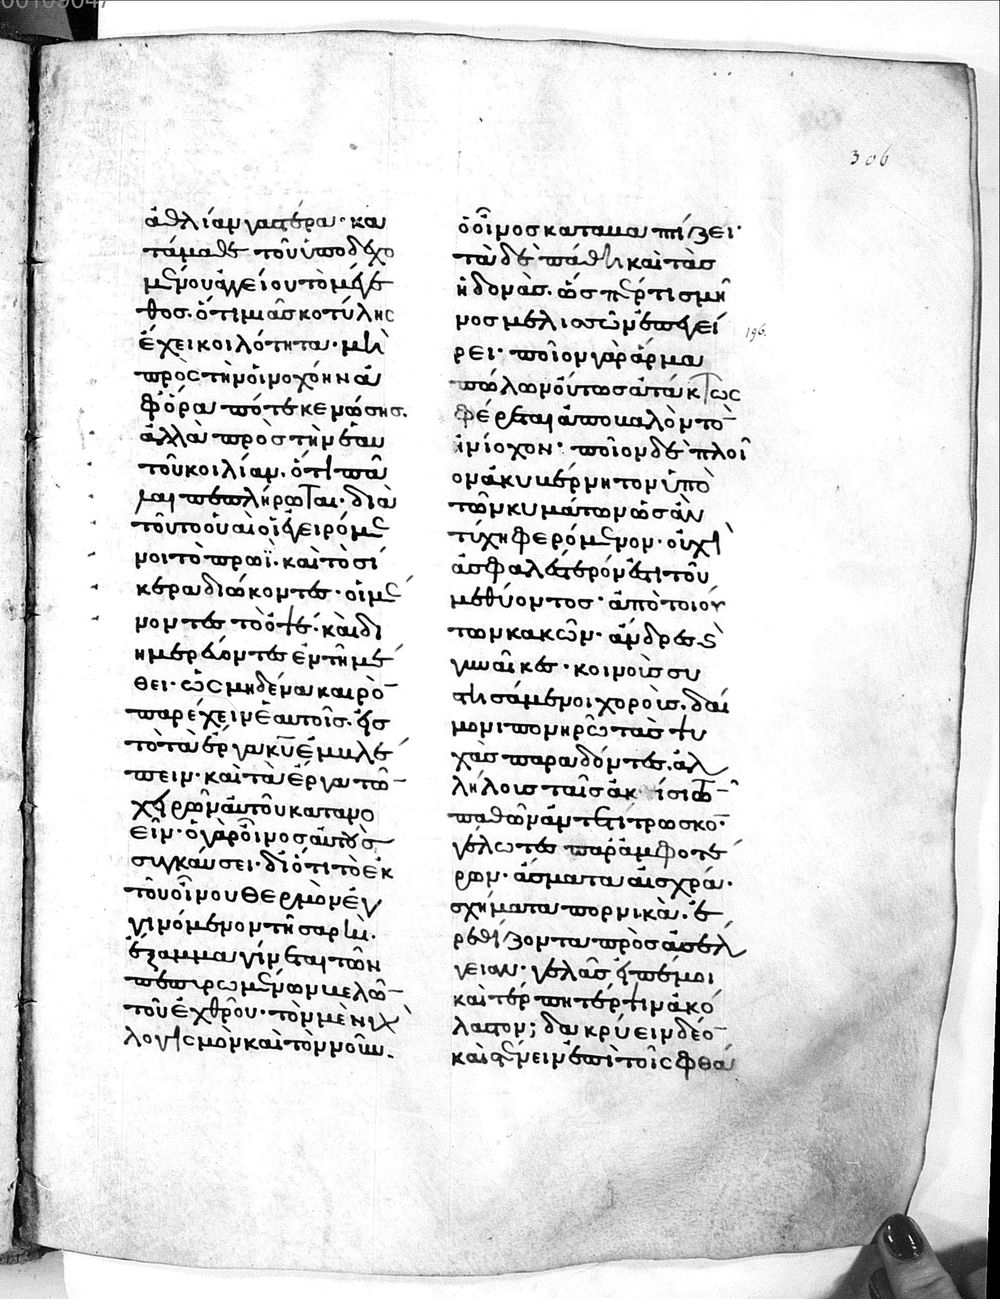 306
ἀθλίαν γαστέρα· και
τάμαθε τοῦ ὑποδεχο
μένου ἀγγείου τὸ μέγε
θος. ὅτι μιᾶς κοτύλης
ἔχει κοιλότητα· μὴ
πρὸς τὴν οἰνοχόην ἀ
φόρα πότε κενώσῃς.
ἀλλὰ πρὸς τὴν ἑαυ
τοῦ κοιλίαν. ὅτι πά
λαι πεπλήρωται· διὰ
τοῦτο οὐαὶ οἱ ἐγειρόμε
νοι τὸ πρωῒ. καὶ τὸ σί
κερα διώκοντες· οἱ μέ
νοντες τὸ ὀψέ. καὶ δι
ημερεύοντες ἐν τῇ μέ
θει· ὡς μηδένα καιρὸν
παρέχειν ἑαυτοῖς. ἐς
τὸ τὰ ἔργα κυ ἐμβλέ
πειν· καὶ τὰ ἔργα τῶν
χειρῶν αὐτοῦ κατανο
εῖν· ὁ γὰρ οἶνος αὐτοὺς
συγκαύσει· διότι τὸ ἐκ
τοῦ οἴνου θερμὸν ἐγ
γινόμενον τῇ σαρκὶ.
ἔξαμμα γίνεται τῶν
πεπυρωμένων βελῶν
τοῦ ἐχθροῦ· τὸν μὲν γὰρ
λογισμὸν καὶ τὸν νοῦν.
ὁ οἶνος καταβαπτίζει·
τὰ δὲ πάθη καὶ τὰς
ἡδονὰς. ὥσπερ τι σμῆ
νος μελισσῶν ἐπεγεί
196.
ρει· ποῖον γὰρ ἅρμα
πώλων οὕτως ἀτάκτως
φέρεται ἀποβαλὸν τὸν
ἡνίοχον· ποῖον δὲ πλοῖ
ον ἀκυβέρνητον ὑπὸ
τῶν κυμάτων ὡς ἂν
τύχῃ φερόμενον. οὐχὶ
ἀσφαλέστερόν ἐστι τοῦ
μεθύοντος· ἀπὸ τοιού
των κακῶν. ἄνδρες κ
γυναῖκες· κοινοὺς συ
στησάμενοι χοροὺς. δαί
μονι πονηρῷ τὰς ψυ
χὰς παραδόντες. ἀλ
λήλους ταῖς ἀκίσι τῶν
παθῶν ἀντετίτρωσκον·
γέλωτες παρ' ἀμφοτέ
ρων. ἄσματα αἰσχρά.
σχήματα πορνικὰ. ἐ
ρεθίζοντα πρὸς ἀσέλ
γειαν. γελᾷς εἰπέ μοι
καὶ τέρπῃ τέρψιν ἀκό
λαστον; δακρύειν δέον
καὶ στένειν ἐπὶ τοῖς φθά